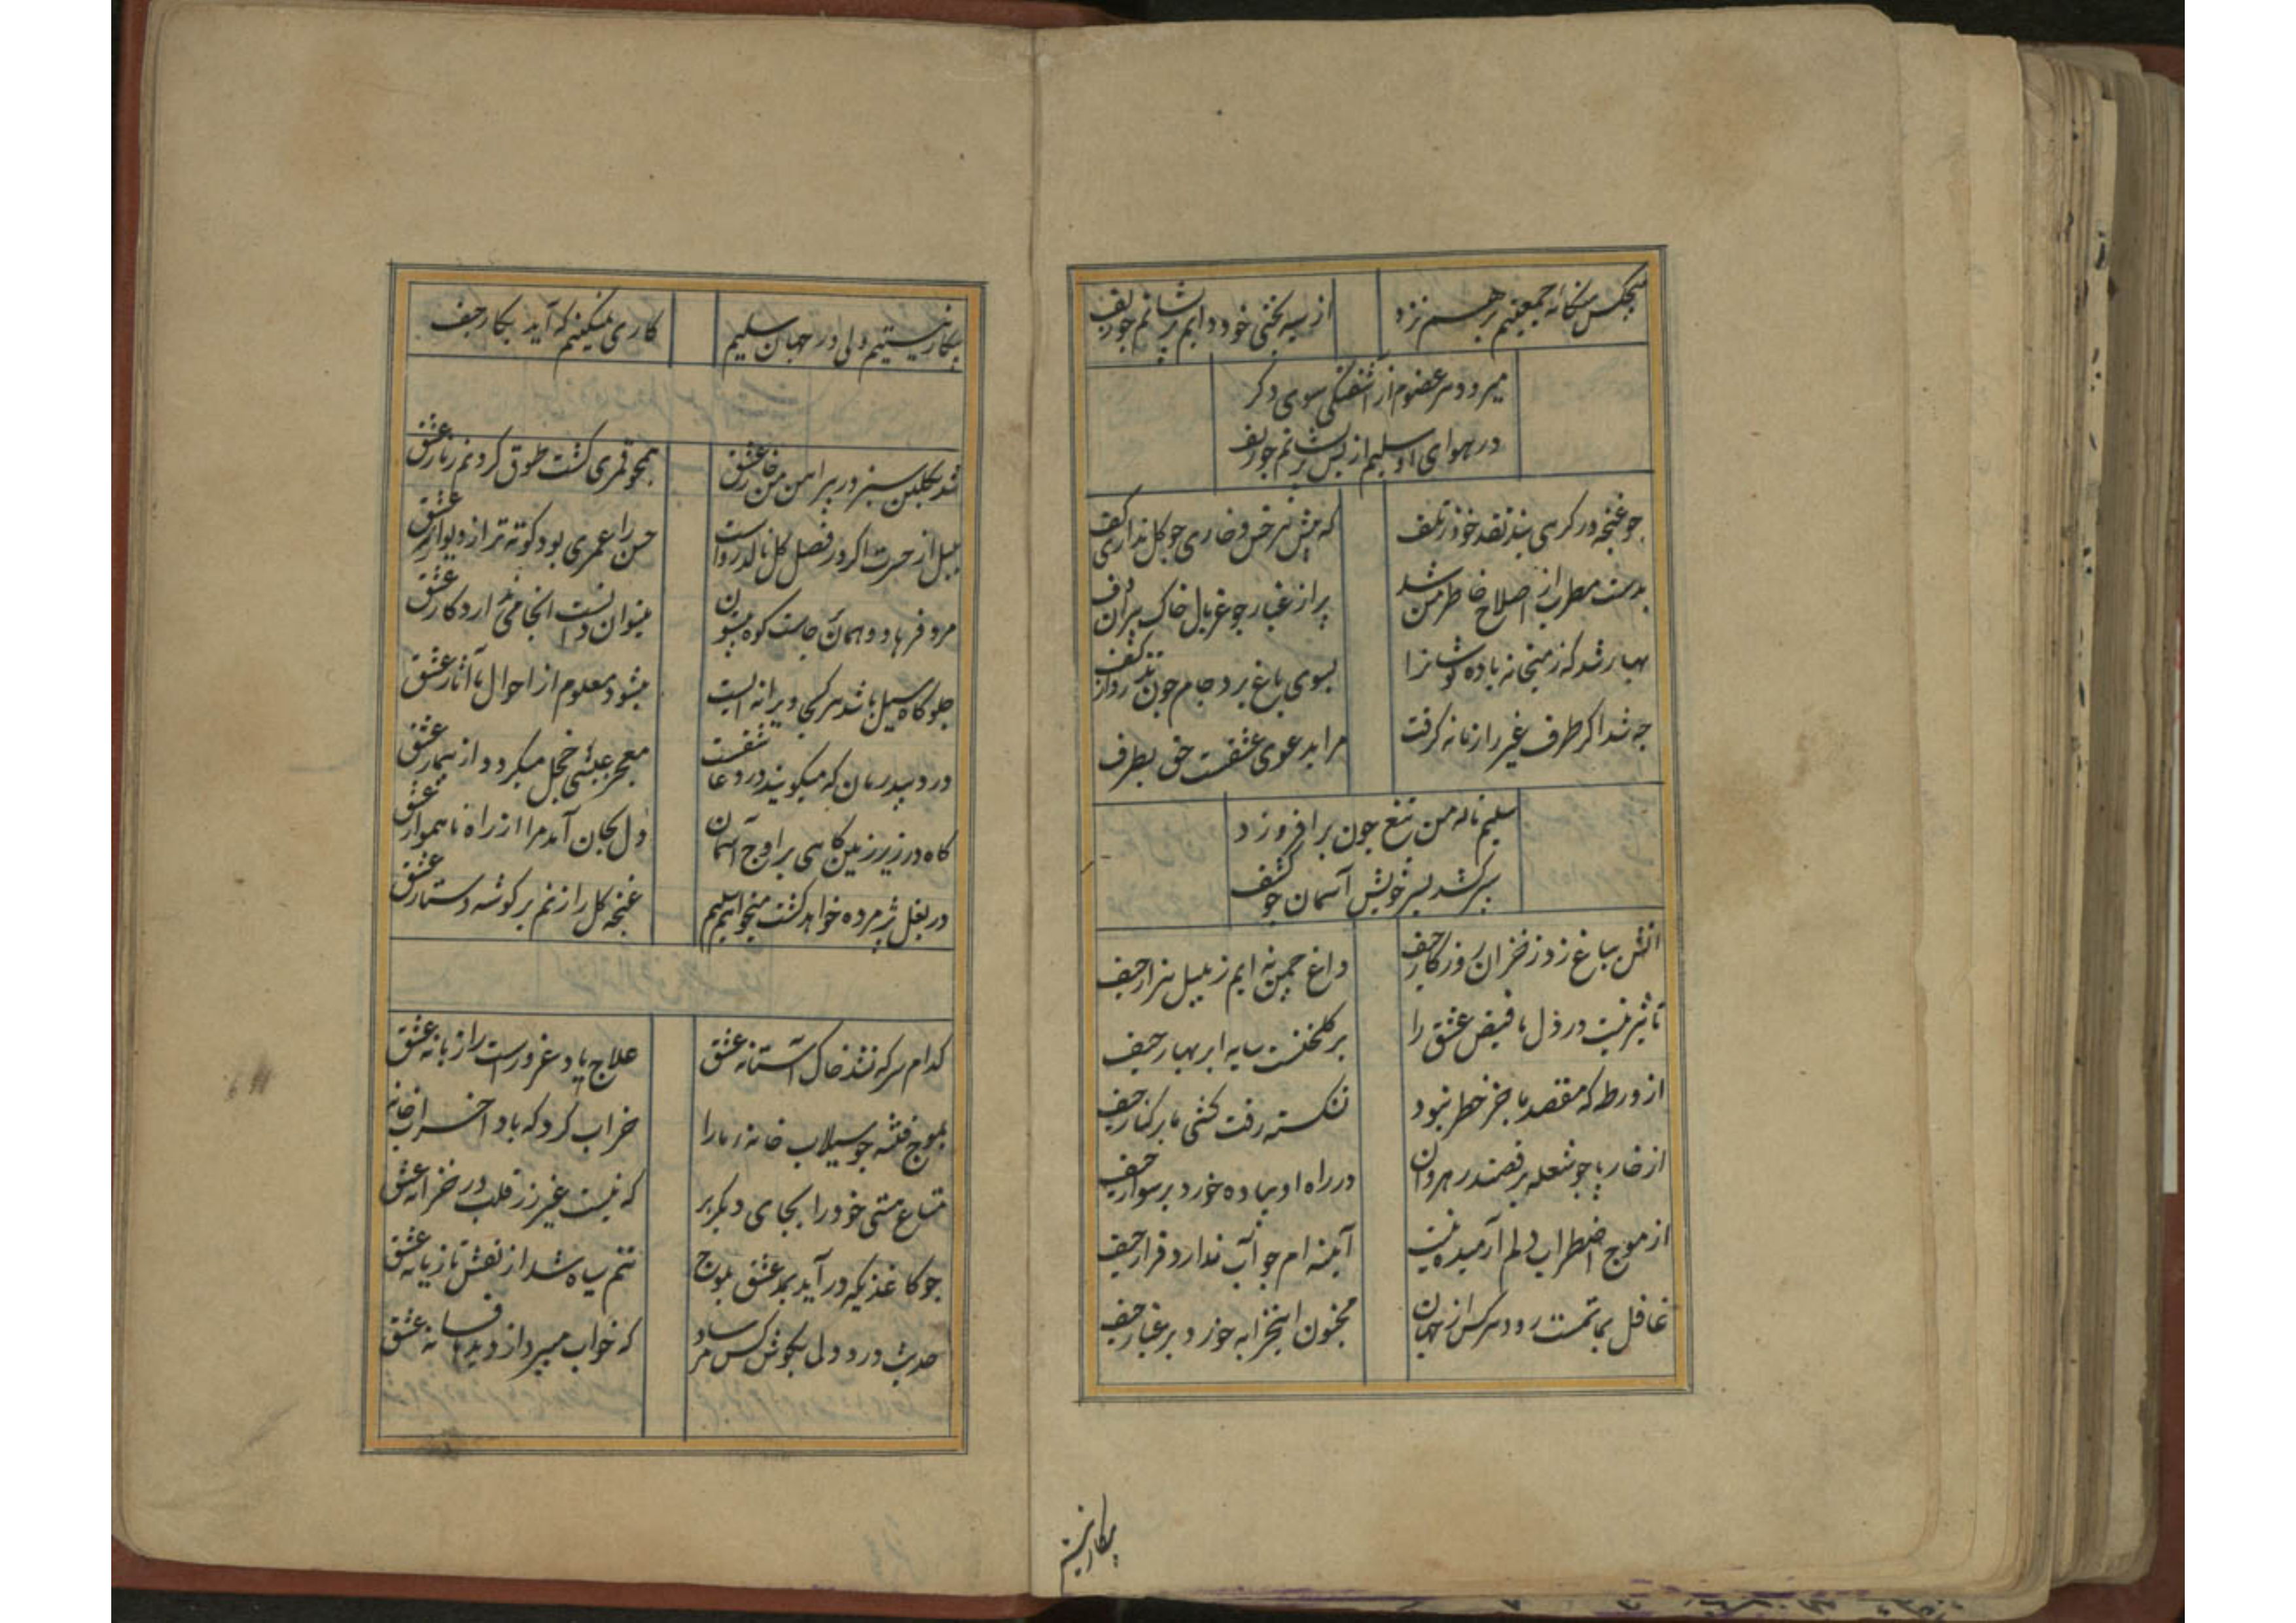 هیچکس هنگامه جمعیتم برهم نزد
از سیه بختی خود دایم پریشانم چو زلف
میرود هر عضوم از آشفتگی سوی دکر
در هوای او سلیم از بس پریشانم چو زلف
چو غنچه در کرهی بند نقد خود ز تلف
که پیش هر خس و خاری چو کل نداری کف
بدست مطرب از اصلاح خاطر من شد
پر از غبار چو غربال خاک بیزان دف
بهار شد که ز میخانه باده نوشانرا
بسوی باغ برد جام چون
چه شد اکر طرف غیر را زمانه کرفت
مرا بدعوی عشقست حق بطرف
سلیم ناله من تیغ چون برافروزد
سپر کشد بسر خویش آسمان چو کشف
آتش بباغ زد ز خزان روزکار حیف
داغ چمن نه ایم ز بلبل هزار حیف
تاثیر نیست در دل ما فیض عشق را
بر کلخنست سایه ابر بهار حیف
از ورطه که مقصد ما جز خطر نبود
نشکسته رفت کشتی ما بر کنار حیف
از خار پا چو شعله برقصند رهروان
در راه او پیاده خورد بر سوار حیف
از موج اضطراب دلم آرمیده نیست
آیینه ام چو آب ندارد قرار حیف
غافل بماتمست رود هر کس از جهان
مجنون این خرابه خورد بر غبار حیف
بیکار نیستیم
بیکار نیستیم ولی در جهان سلیم
کاری نمیکنیم که آید بکار حیف
شد کلبن سبز در پیراهن من خار عشق
همچو قمری کشت طوق کردنم زنار عشق
بلبل از حسرت اکر در فصل کل نالد رواست
حسن را عمری بود کوته تر از دیوار عشق
مرد فرهاد و همان جاست کوه بیستون
میتوان دانست انجامی ندارد کار عشق
جلوکاه سیل باشد هر کجا ویرانه ایست
میشود معلوم از احوال ما آثار عشق
درد بیدرمان که میکویند درد عاشقست
معجز عیسی خجل میکردد از بیمار عشق
کاه در زیر زمین کاهی بر اوج آسمان
دل بجان آمد مرا از راه ناهموار عشق
در بغل پژمرده خواهد کشت میخواهم سلیم
غنچه کل را زنم بر کوشه دستار عشق
کدام سر که نشد خاک آستانه عشق
علاج باد غرور است رازیانه عشق
بموج فتنه چو سیلاب خانه ما را
خراب کرد که باد خراب خانه
متاع هستی خود را بجای دیکر بر
که نیست غیر زر قلب در خزانه عشق
چو کاغذیکه درآید بمد عشق بموج
تنم سیاه شد از نقش تازیانه عشق
حدیث درد دل بکوش کس مرساد
که خواب میبرد از دیدها فسانه عشق